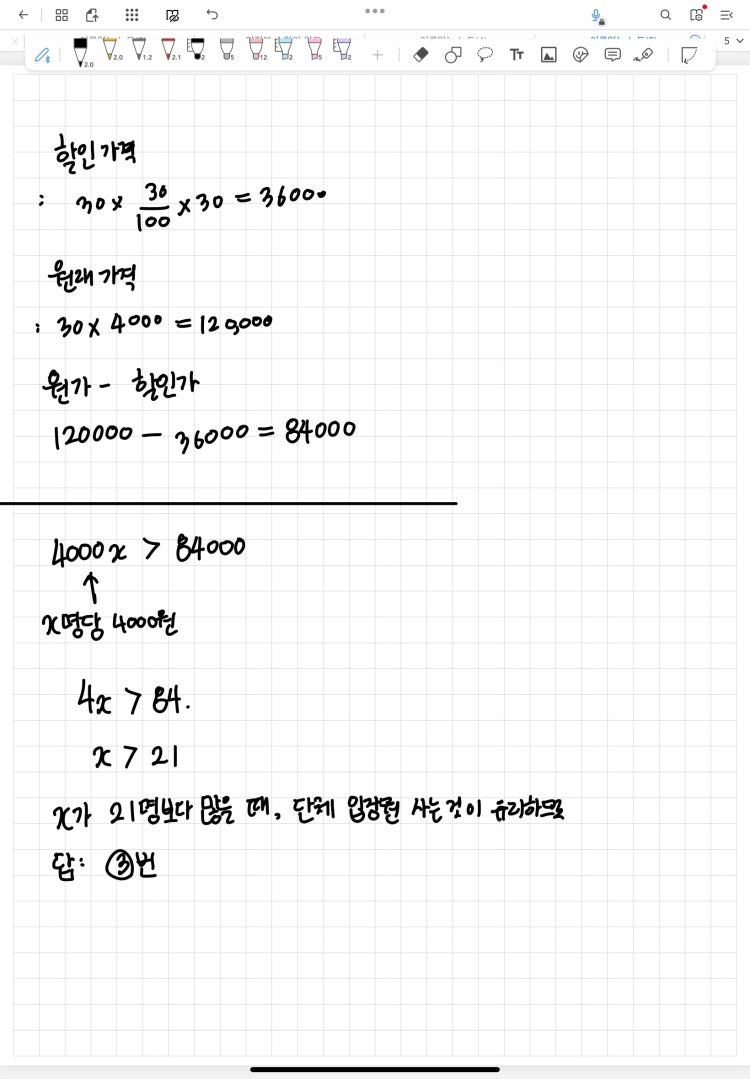 2.0
2.0
1.2
2.1
Tr
5
할인가격
: 30 × 30/100 × 30 = 36000
원래가격
: 30 × 4000 = 120,000
원가 - 할인가
120000 - 36000 = 84000
4000x > 84000
↑
x명당 4000원
4x > 84.
x > 21
x가 21명보다 많을 때, 단체 입장권 사는것이 유리하므로
답: ③번